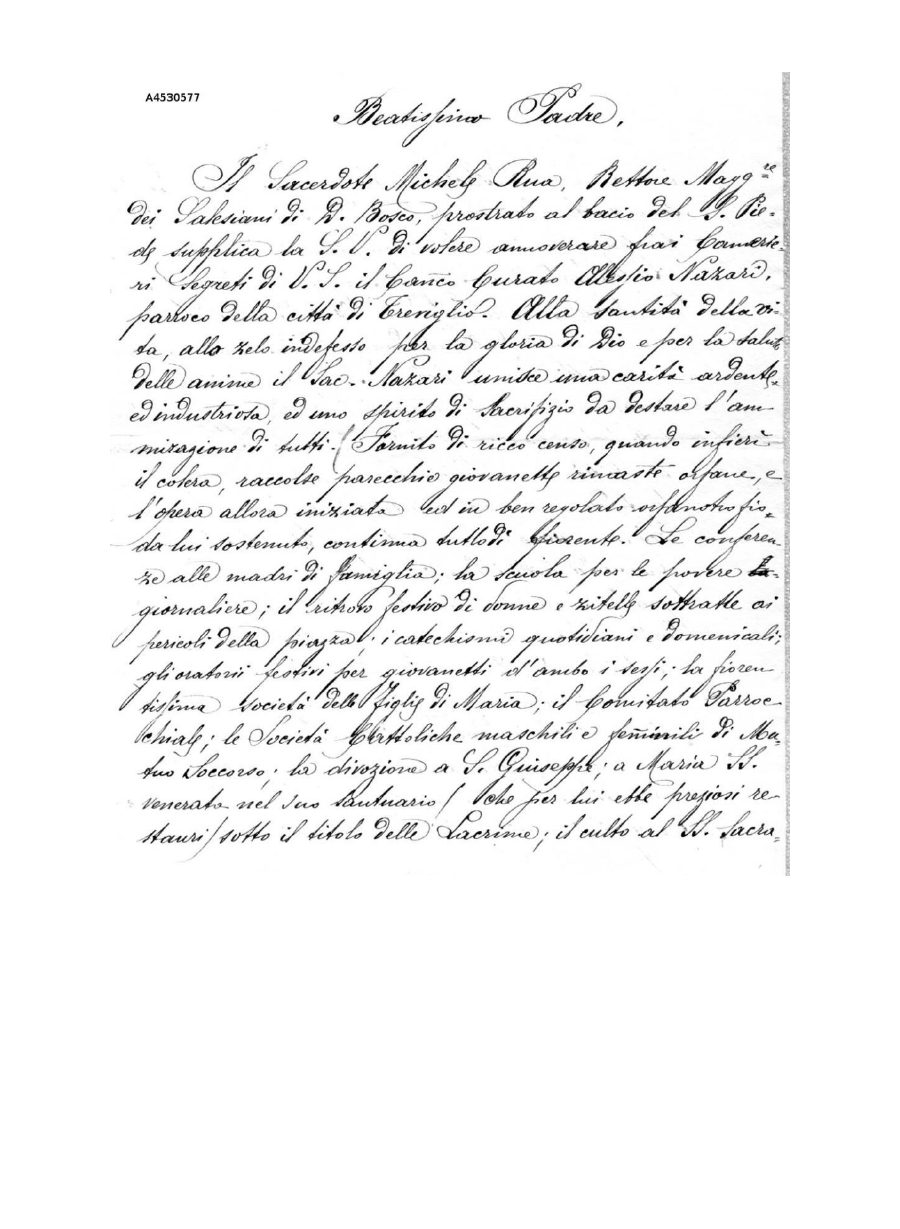 A4530577
Beatissimo Padre,
Il Sacerdote Michele Rua, Rettore Magg.re
dei Salesiani di D. Bosco, prostrato al bacio del S. Pie-
de supplica la S. V. di volere annoverare fra i Camerie-
ri Segreti di V. S. il Can̄co Curato Alessio Nazari,
parroco della città di Treviglio. Alla santità della vi-
ta, allo zelo indefesso per la gloria di Dio e per la salute
delle anime il Sac. Nazari unisce una carità ardente,
ed industriosa, ed uno spirito di Sacrifizio da destare l'am
mirazione di tutti. (Fornito di ricco censo, quando infierì
il colera, raccolse parecchie giovanette rimaste orfane, e
l'opera allora iniziata ed in ben regolato orfanotrofio,
da lui sostenuto, continua tuttodì fiorente. Le conferen
ze alle madri di famiglia; la scuola per le povere
giornaliere; il ritrovo festivo di donne e zitelle sottratte ai
pericoli della piazza; i catechismi quotidiani e domenicali;
gli oratorii festivi per giovanetti d'ambo i sessi; la fioren
tissima società delle Figlie di Maria; il Comitato Parroc
chiale; le Società Cattoliche maschili e feminili di Mu-
tuo Soccorso; la divozione a S. Giuseppe; a Maria SS.
venerata nel suo santuario (che per lui ebbe preziosi re
stauri) sotto il titolo delle Lacrime; il culto al SS. Sacra-